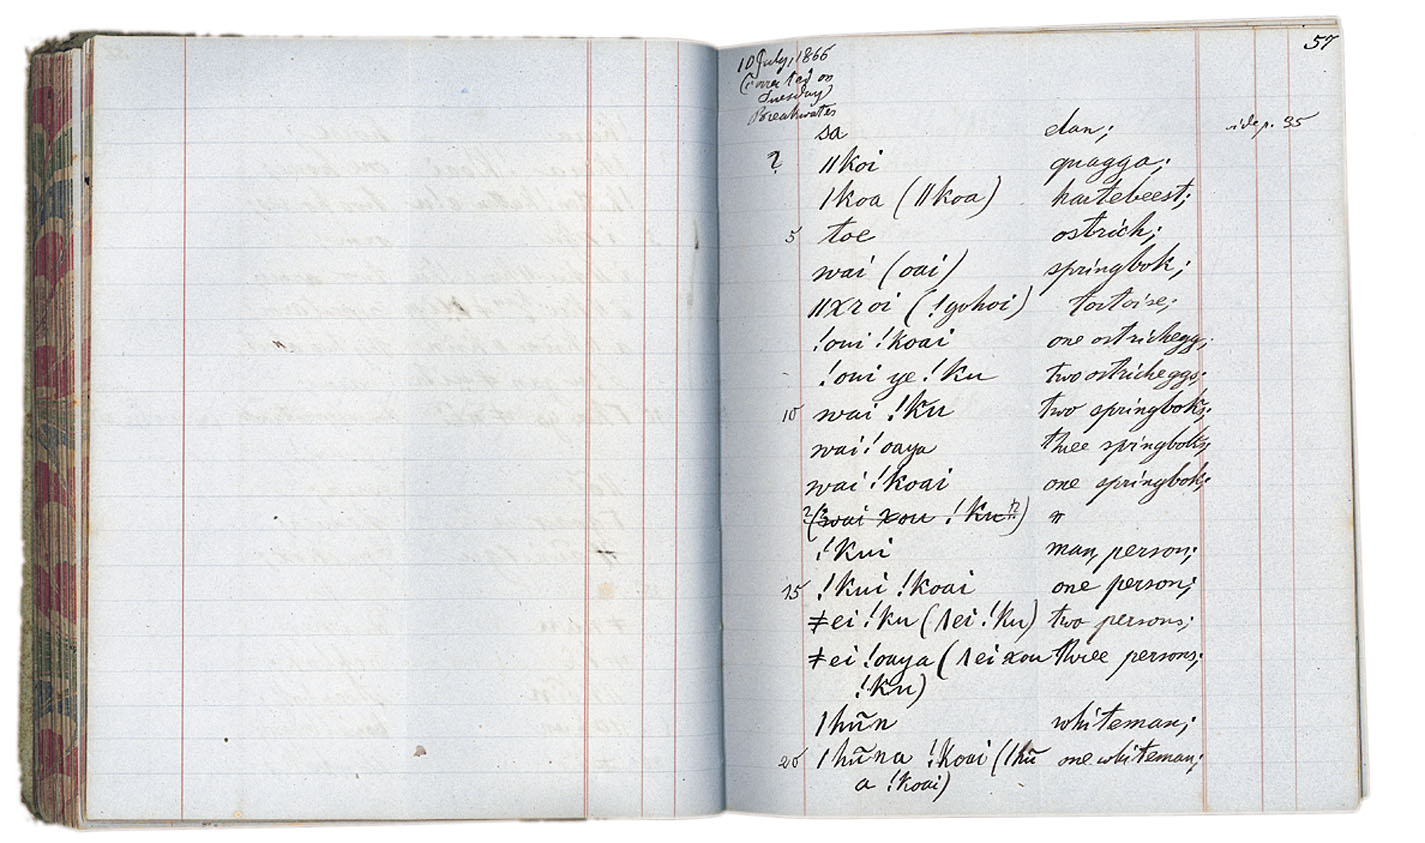 57
10 July, 1866
(corrected on
Tuesday)
Breakwater
sa elan; vide p. 35
? ǁkoi quagga;
ǀkoa (ǁkoa) hartebeest;
5 toe ostrich;
wai (oai) springbok;
ǁxroi (!gohoi) tortoise;
!oui !koai one ostrichegg;
!oui ye !ku two ostricheggs;
10 wai !ku two springboks;
wai !oaya three springboks;
wai !koai one springbok;
?(wai xou !ku)
!kui man, person;
15 !kui !koai one person;
ǂei !ku (ǀei !ku) two persons;
ǂei !oaya (ǀei xou three persons;
!ku)
ǀhũn whiteman;
20 ǀhũna !koai (ǀhũ one whiteman;
a !koai)